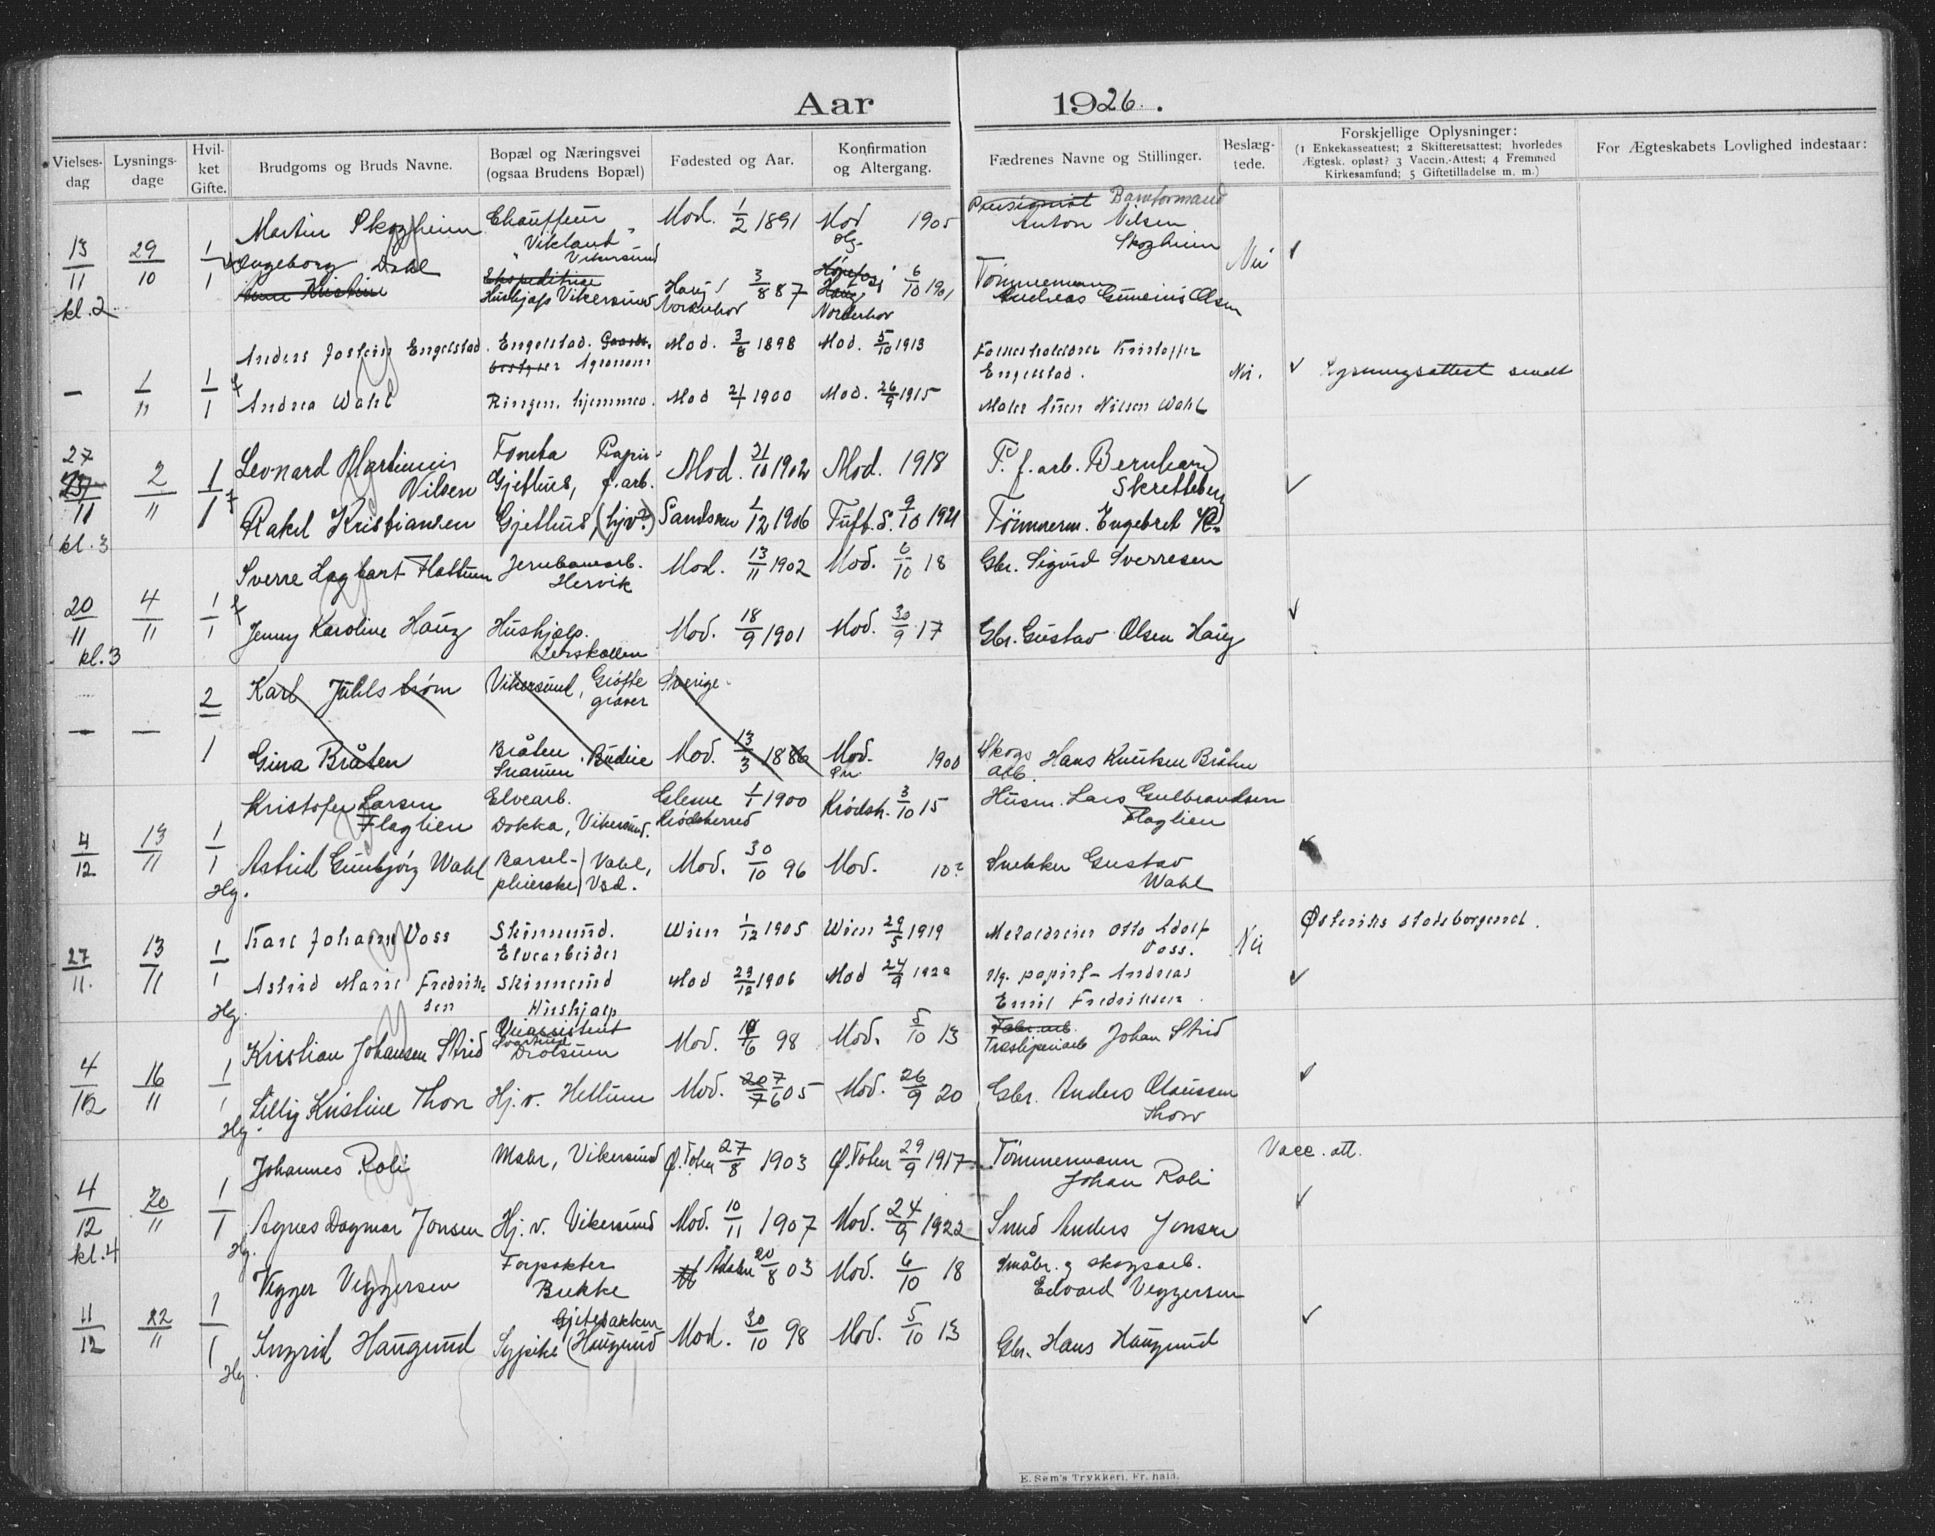 Aar 1926.
Vielses-dag
Lysnings-dage
Hvil-ket Gifte.
Brudgoms og Bruds Navne.
Bopæl og Næringsvei (ogsaa Brudens Bopæl)
Fødested og Aar.
Konfirmation og Altergang.
Fædrenes Navne og Stillinger.
Beslæg-tede.
Forskjellige Oplysninger:
(1 Enkekasseattest; 2 Skifteretsattest; hvorledes Ægtesk. opløst? 3 Vaccin.-Attest; 4 Fremmed Kirkesamfund; 5 Giftetilladelse m. m.)
For Ægteskabets Lovlighed indestaar:
13/11 kl. 2 29/10 1/1
Martin Skogheim Chauffeur Vikersund Mod. 1/2 1891 Mod 1905 Baneformand Anton Nilsen Skogheim Nei
Ingeborg Dahl Anne Kristine Ekspeditrise Hushjelp Vikersund Haug Norderhov 3/8 87 Hønefoss Haug Norderhov 6/10 1901 Tømmermann Andreas Gunerius Olsen
— 1/11 1/1
Anders Jostein Engelstad. Engelstad. Agronom Mod. 3/8 1898 Mod. 5/10 1913 Kristoffer Engelstad. Nei. Lysningsattest sendt
Andrea Wahl Ringen. hjemmev. Mod 21/1 1900 Mod. 26/9 1915 Maler Nilsen Wahl
27/11 kl. 3 2/11 1/1
Leonard Martinius Nilsen Papir f. arb. Gjethus, Mod. 31/10 1902 Mod. 1918 P. f. arb. Bernhard Skretteberg
Rakel Kristiansen Gjethus (hjv.) 1/12 1906 Tuft. S. 9/10 1921 Tømmerm. Engebret K
20/11 kl. 3 4/11 1/1
Sverre Hagbart Flattum Jernbanearb. Hervik Mod. 13/11 1902 Mod. 6/10 18 Gbr. Sigurd Sverresen
Jenny Karoline Haug Hushjælp. Lerskallen Mod. 18/9 1901 Mod. 30/9 17 Gbr. Gustav Olsen Haug
— — 2
Karl Juhlstrøm Vikersund, Grøftegraver Sverige.
1
Gina Bråten Bråten Snarum. Budeie Mod. 13/3 1886 Mod. Sn 1900 Skogsarb. Hans Knutsen Bråten
4/12 13/11 1/1 Hg.
Kristofer Larsen Flaglien Elvearb. Dokka, Vikersund. Glesne Krødsherred 1/1 1900 Krødsh. 3/10 15 Husm. Lars Gulbrandsen Flaglien
Astrid Gunbjørg Wahl Barselpleierske Vahl, Vsd. Mod. 30/10 96 Mod. 10? Snekker Gustav Wahl
27/11. 13/11 1/1 Hg.
Karl Johann Voss Skinnsund. Elvearbeider Wien 1/12 1905 Wien 29/5 1919 Metaldreier Otto Adolf Voss. Nei Østeriks statsborger.
Astrid Marie Fredriksen Skinnsund Hushjælp Mod 23/12 1906 Mod 24/9 Andreas Emil Fredriksen
4/12 16/11 1/1 Hg.
Kristian Johansen Strid Veiassistent Drolsum Mod. 6 98 Mod. 5/10 13 Fabr.arb. Træsliperiarb Johan Strid
Lillig Kristine Thon Hj. v. Hellum Mod. 20/7 7/6 05 Mod. 26/9 20 Gbr. Anders Olaussen Thon
4/12 kl. 4 20/11 1/1 Hg.
Johannes Roli Maler, Vikersund Ø. Toten 27/8 1903 Ø. Toten 29/9 1917 Tømmermann Johan Roli Vacc. att.
Agnes Dagmar Jonsen Hj. v. Vikersund Mod. 10/11 1907 Mod. 24/9 1922 Smed Anders Jonsen
11/12 22/11 1/1 Hg.
Vegger Veggersen Forpakter Bukke Gjetebakken Ådalen 20/8 03 Mod. 6/10 18 Småbr. og skogsarb. Edvard Veggersen
Ingrid Haugsund Sypike (Haugsund Mod. 30/10 98 Mod. 5/10 13 Gbr. Hans Haugsund
E. Sem's Trykkeri, Fr.hald.